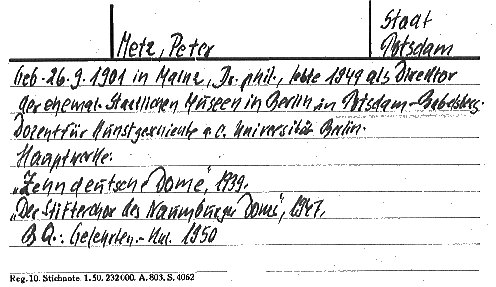 Metz, Peter
Staat
Potsdam
Geb. 26.9.1901 in Mainz, Dr. phil., lebte 1949 als Direktor
der ehemal. Staatlichen Museen in Berlin in Potsdam-Babelsberg.
Dozent für Kunstgeschichte a.d. Universität Berlin.
Hauptwerke:
„Zehn deutsche Dome", 1939.
„Der Stifterchor des Naumburger Doms", 1947.
BQ.: Gelehrten-Kal. 1950
Reg. 10. Stichnote. 1. 50. 232 000. A. 803. S. 4062